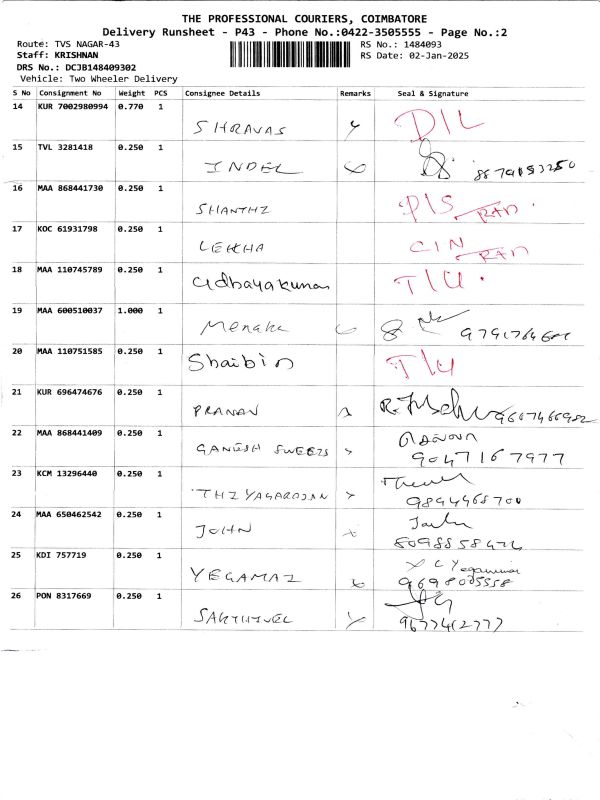 THE PROFESSIONAL COURIERS, COIMBATORE
Delivery Runsheet - P43 - Phone No.:0422-3505555 - Page No.:2
Route: TVS NAGAR-43 RS No.: 1484093
Staff: KRISHNAN RS Date: 02-Jan-2025
DRS No.: DCJB148409302
Vehicle: Two Wheeler Delivery
S No Consignment No Weight PCS Consignee Details Remarks Seal & Signature
14 KUR 7002980994 0.770 1
SHRAVAS D/L
15 TVL 3281418 0.250 1
INDEL
16 MAA 868441730 0.250 1
SHANTHI P/S
17 KOC 61931798 0.250 1
LEKHA C/N
18 MAA 110745789 0.250 1
Udhayakumar T/U
19 MAA 600510037 1.000 1
Menaka
20 MAA 110751585 0.250 1
Shaibin T/U
21 KUR 696474676 0.250 1
PRANAV
22 MAA 868441409 0.250 1
GANESH SWEETS 9047167977
23 KCM 13296440 0.250 1
THIYAGARAJAN
24 MAA 650462542 0.250 1
JOHN
25 KDI 757719 0.250 1
YEGAMAI
26 PON 8317669 0.250 1
SAKTHIVEL 9677412777